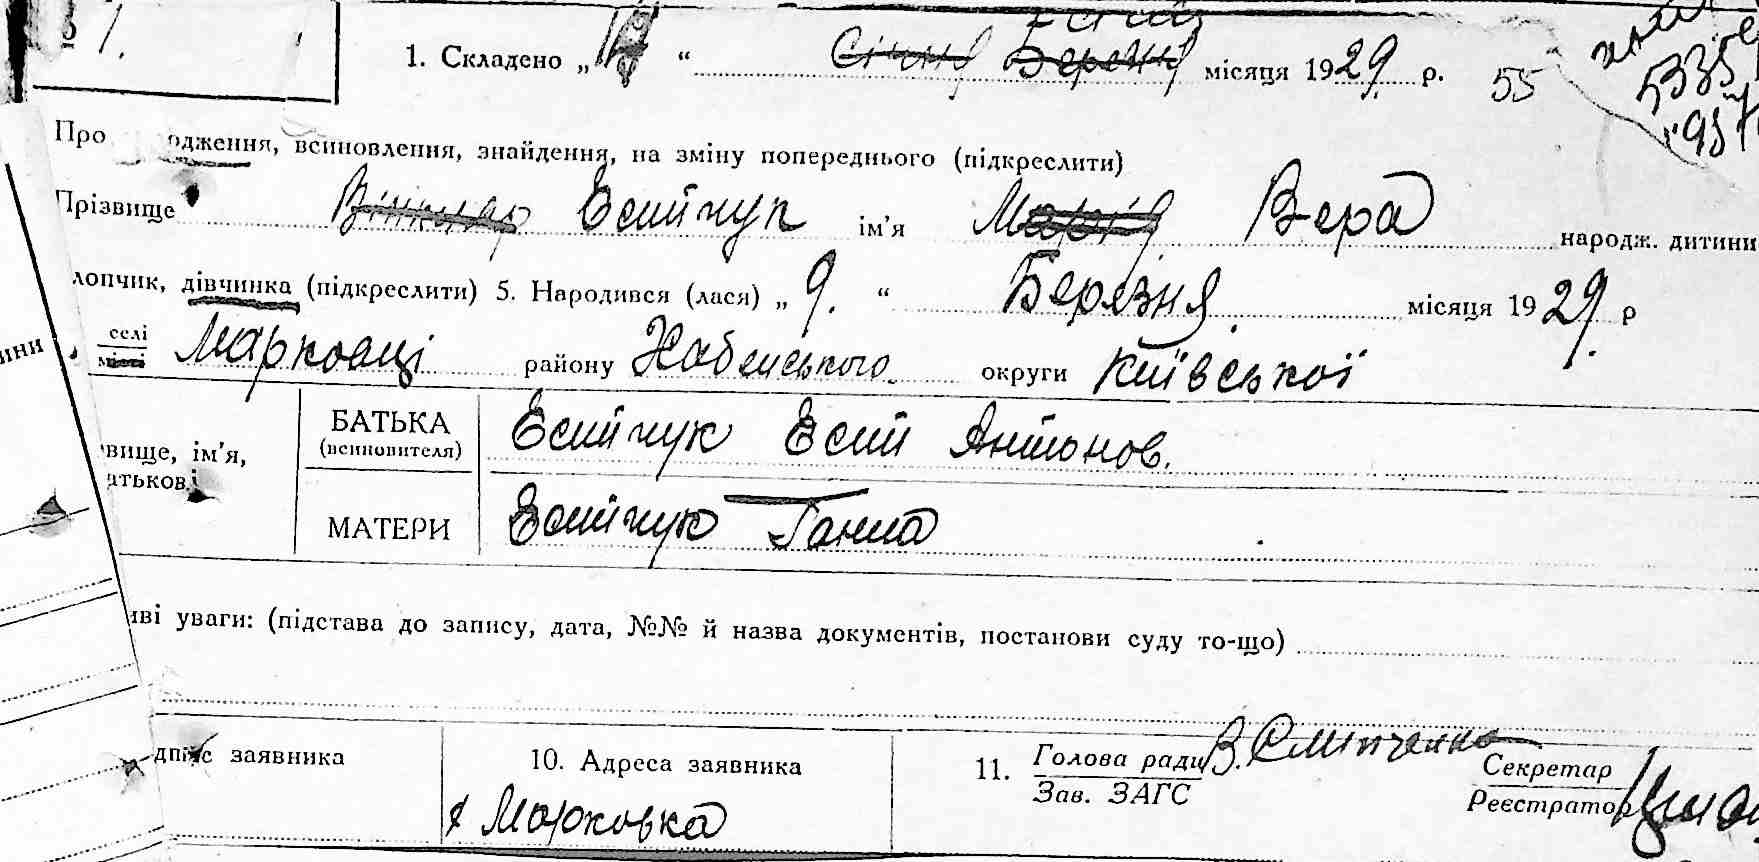 1.
1. Складено „ “ Січня Березня місяця 1929 р. 55
Про одження, всиновлення, знайдення, на зміну попереднього (підкреслити)
Прізвище Есийчук ім'я Марія Вера народж. дитини
лопчик, дівчинка (підкреслити) 5. Народився (лася) „ 9. “ Березня місяця 1929. р
селі
місті Марковці району округи Київської
ини
вище, ім'я,
атьков.
БАТЬКА
(всиновителя)
Есийчук Есий Антонов.
МАТЕРИ Есийчук Ганна
иві уваги: (підстава до запису, дата, №№ й назва документів, постанови суду то-що)
дпис заявника 10. Адреса заявника 11. Голова ради
Зав. ЗАГС
Секретар
Реєстратор
Марковка